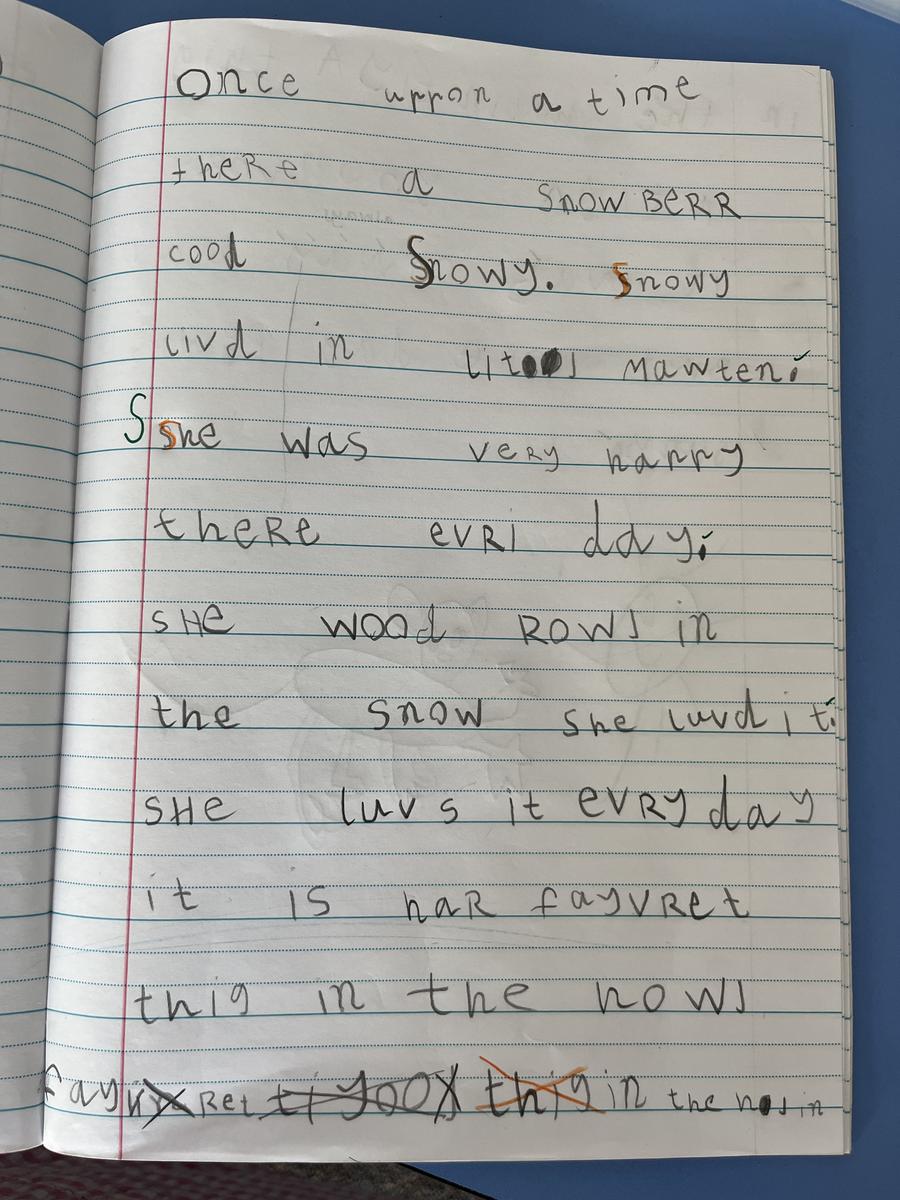 Once uppon a time
there a snowberr
cood Snowy. Snowy
livd in litool mawten.
S she was very happy
there evri day.
she wood rowl in
the snow she luvd it.
she luvs it evry day
it is har fayvret
thig in the howl
fay ret thig in the